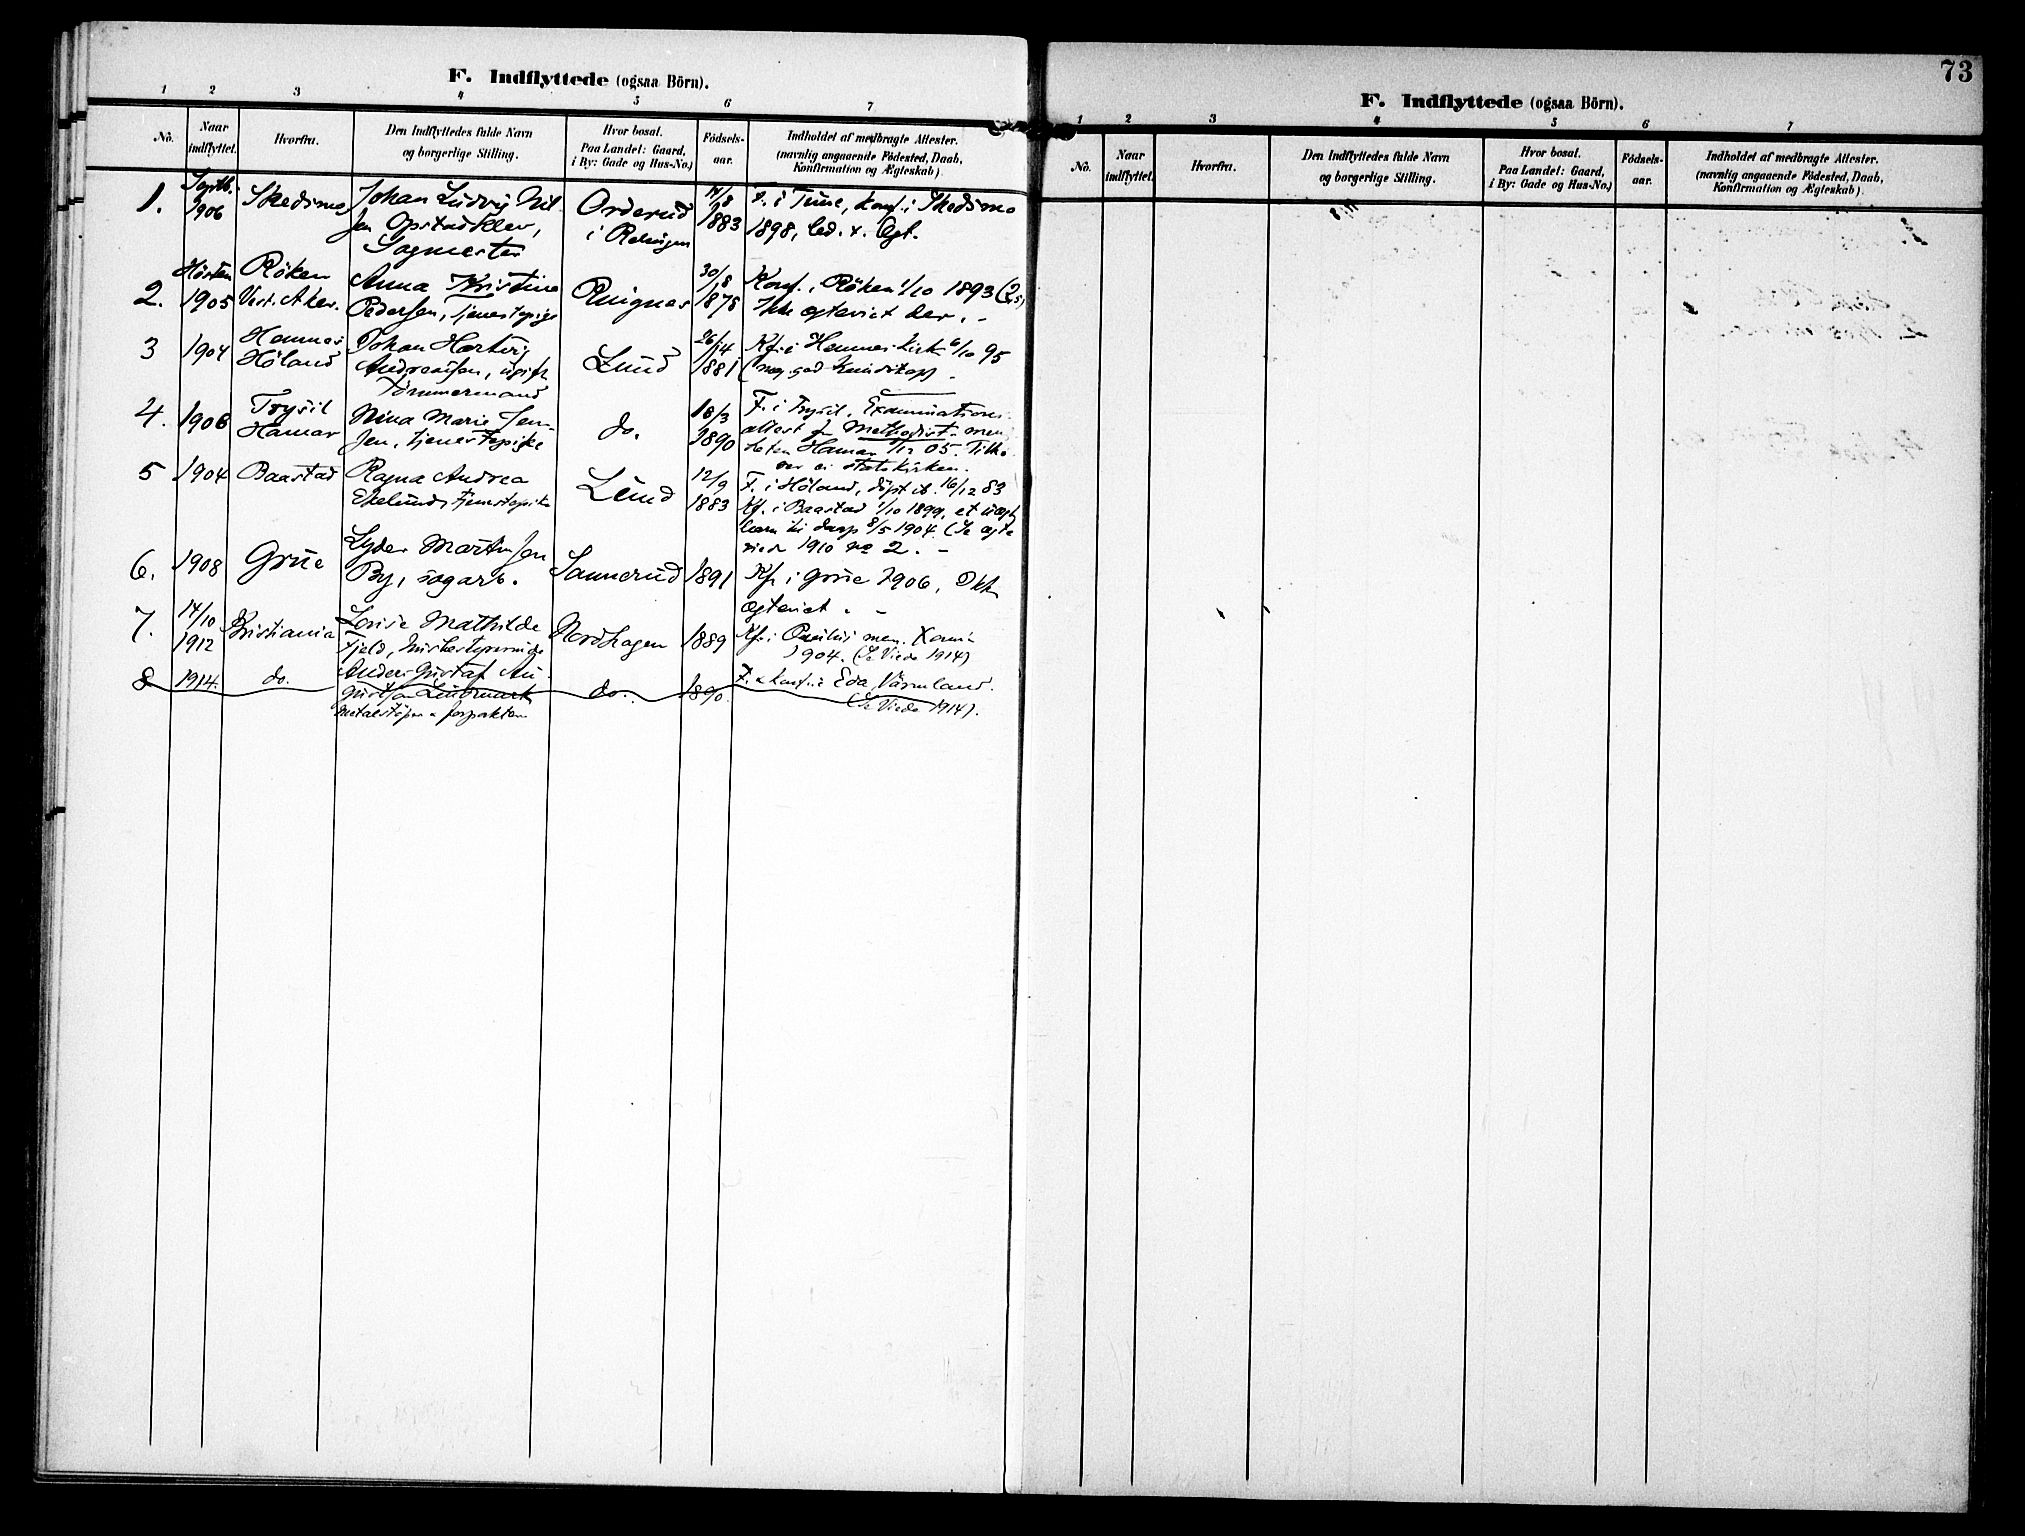 F. Indflyttede (ogsaa Börn).
1 2 3 4 5 6 7
No. Naar indflyttet. Hvorfra. Den Indflyttedes fulde Navn og borgerlige Stilling. Hvor bosat. Paa Landet: Gaard, i By: Gade og Hus-No.) Födsels-aar. Indholdet af medbragte Attester. (navnlig angaaende Födested, Daab, Konfirmation og Ægteskab)
1. Septb. 1906 Skedsmo Johan Ludvig Nil-
sen Opstad Klev,
Sagmester
Orderud
i Relingen
14/8
1883
F. i Tune, Konf. i Skedsmo
1898, led. t. Ægt.
2. Hösten 1905 Röken
Vest. Aker.
Anna Kristine
Pedersen, tjenestepige
Ringnes
30/8
1878
Konf. i Röken 1/10 1893
Ikke ægteviet der. -
3 1904 Hemnes
Höland
Johan Hartvig
Andreassen, ugift
Tömmermand
Lund
26/4
1881
Kf. i Hemnes Kirke 6/10 95
(meg. god Kundskap) -
4. 1906 Trysil
Hamar
Nina Marie Jen-
sen, tjenestepike
do.
18/3
1890
F. i Trysil. Examinations-
attest f. Methodist-men
heten Hamar 1/12 05. Tilh.
ei statskirken.
5 1904 Baastad Ragna Andrea
Ekelund, tjenestepike
Lund
12/9
1883
F. i Höland, döpt ib. 16/12 83
Kf. i Baastad 1/10 1899, et uægt.
barn til daap 8/5 1904. (Se ægte
viede 1910 no 2. -
6. 1908 Grue Lyder Martinsen
By, sagarb.
Sannerud 1891 Kf. i Grue 1906,
ægteviet. -
7. 14/10
1912
Kristiania Lovise Mathilde
Fjeld,
Nordhagen 1889 Kf. i Paulus men. Xania
1904. (Se Viede 1914)
8 1914. do. Anders Gustaf Au-
gustsson Lindmark
Metalstöper & forpakter
do. 1890. F. & konf. i Eda Värmland.
(Se Viede 1914).
73
F. Indflyttede (ogsaa Börn).
1 2 3 4 5 6 7
No. Naar indflyttet. Hvorfra. Den Indflyttedes fulde Navn og borgerlige Stilling. Hvor bosat. Paa Landet: Gaard, i By: Gade og Hus-No.) Födsels-aar. Indholdet af medbragte Attester. (navnlig angaaende Födested, Daab, Konfirmation og Ægteskab)